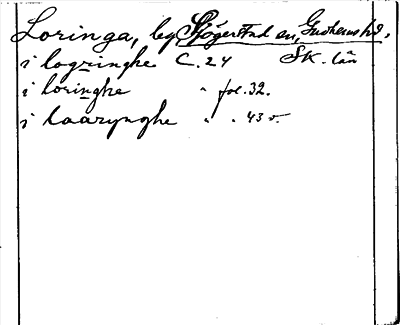 Loringa, by Sjögerstad sn, Gudhems hd,
i logringhe C. 24 Sk. län
i loringhe " fol. 32.
i laarynghe " " 43 v.